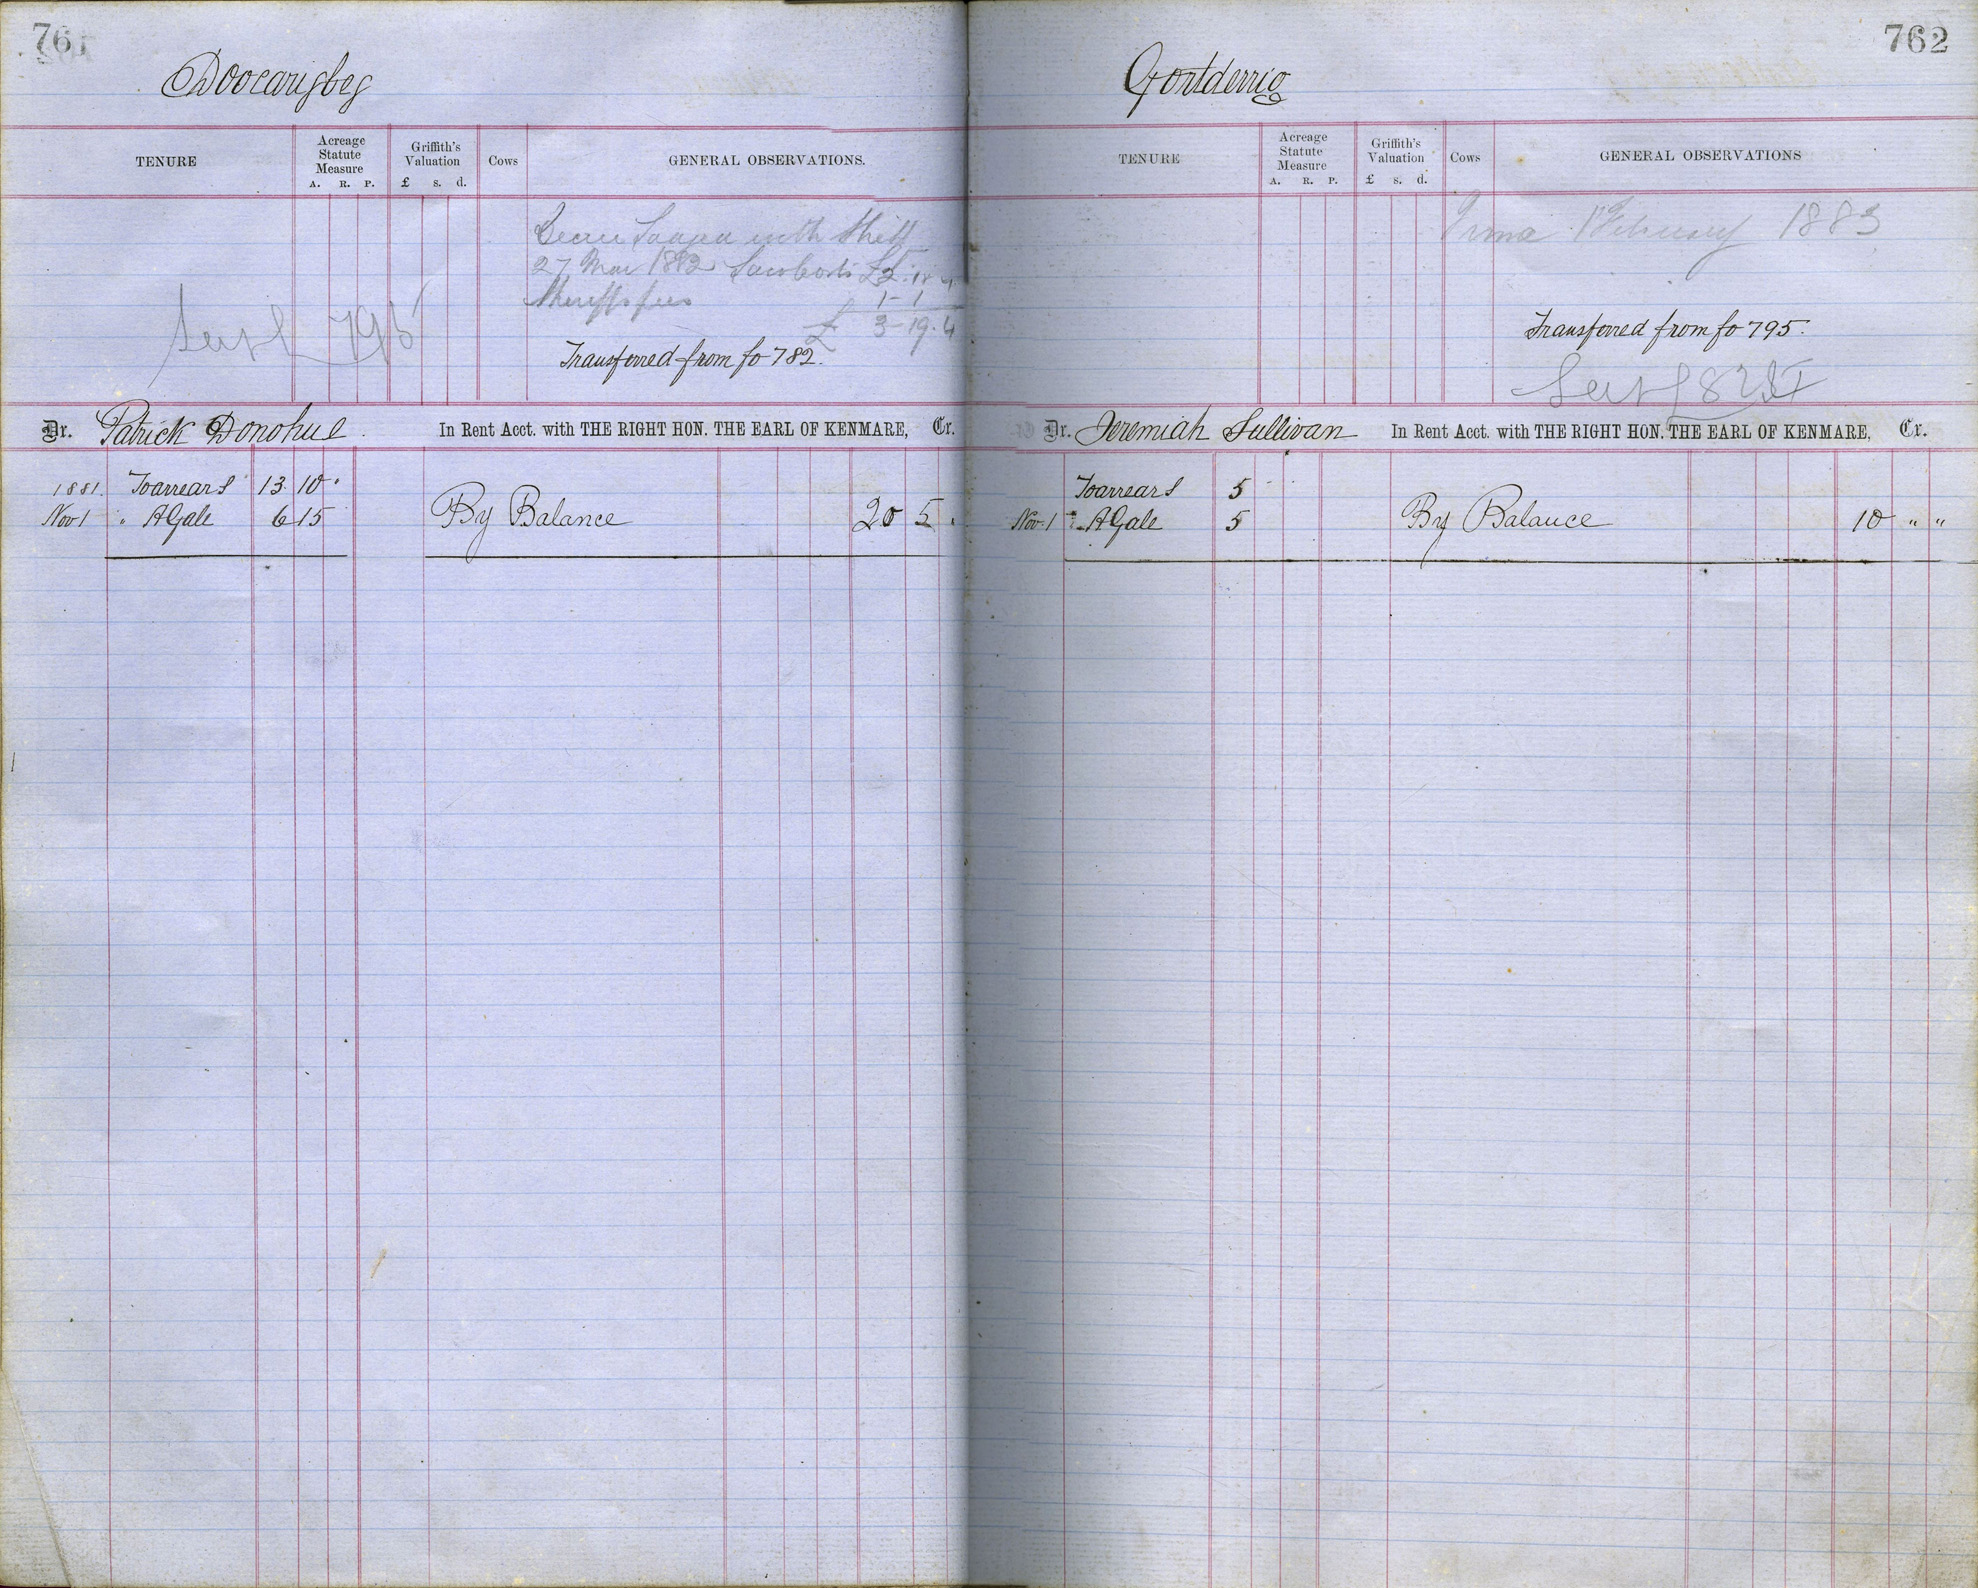 761
Doocarigbeg
TENURE
Acreage Statute Measure
A. R. P.
Griffith's Valuation
£ s. d.
Cows
GENERAL OBSERVATIONS.
with
27 Mar 1882 Law Costs £2. 18. 4
Sheriffs fees 1 - 1
£ 3 - 19. 4
Transferred from fo 782.
Dr. Patrick Donohue. In Rent Acct. with THE RIGHT HON. THE EARL OF KENMARE, Cr.
1881. To arrears 13 10 "
Nov 1 " A Gale 6 15
By Balance 20 5 "
762
Gortderrig
TENURE
Acreage Statute Measure
A. R. P.
Griffith's Valuation
£ s. d.
Cows
GENERAL OBSERVATIONS
February 1883
Transferred from fo 795.
Dr. Jeremiah Sullivan In Rent Acct. with THE RIGHT HON. THE EARL OF KENMARE, Cr.
To arrears 5
Nov. 1 " A Gale 5
By Balance 10 " "